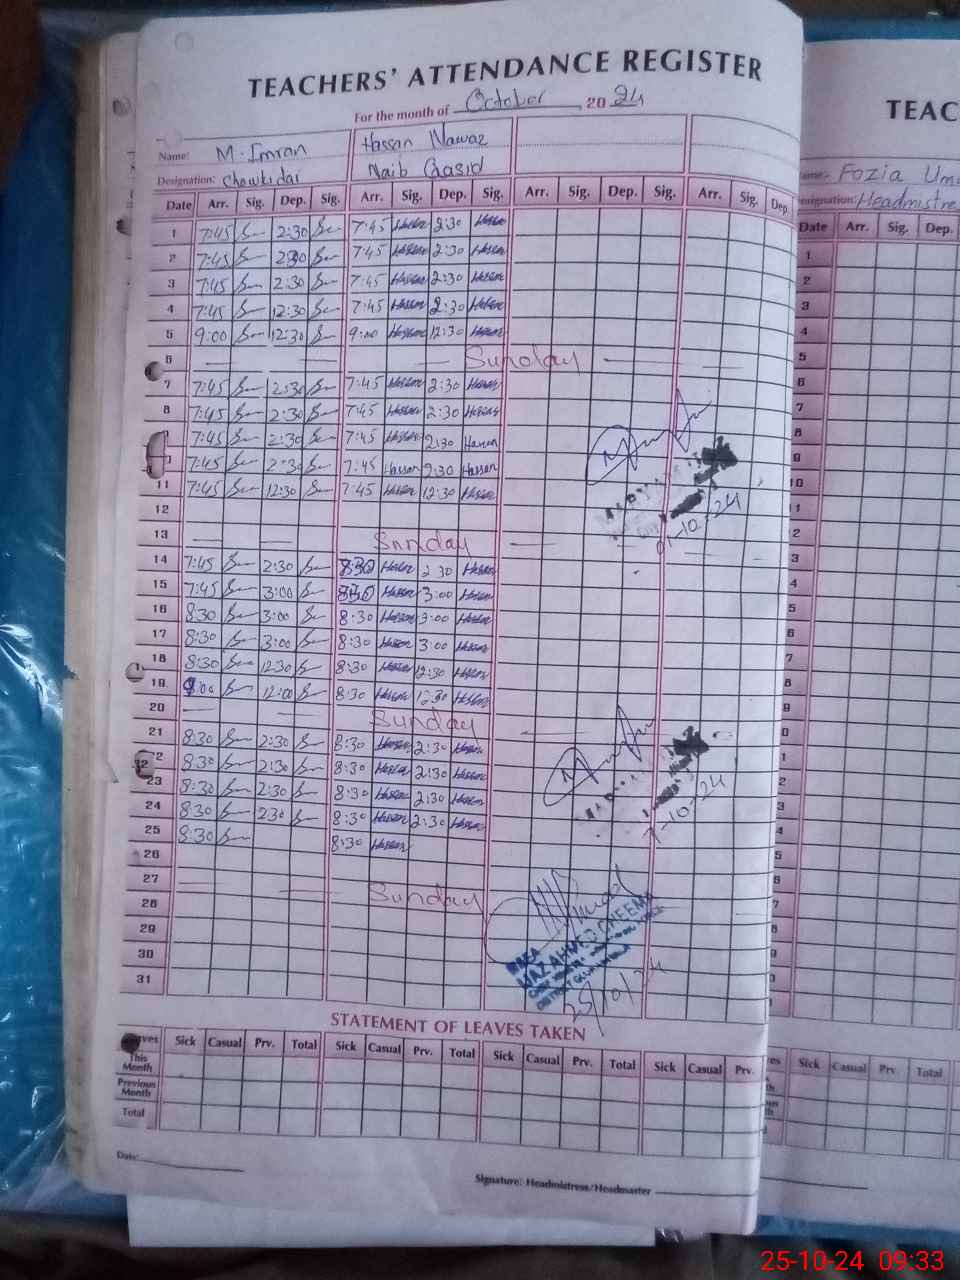 TEACHERS' ATTENDANCE REGISTER
For the month of October, 2024
Name: M. Imran Hassan Nawaz
Designation: Chowkidar Naib Qasid
Date Arr. Sig. Dep. Sig. Arr. Sig. Dep. Sig. Arr. Sig. Dep. Sig. Arr. Sig. Dep.
1 7:45 2:30 7:45 Hassan 2:30 Hassan
2 7:45 2:30 7:45 Hassan 2:30 Hassan
3 7:45 2:30 7:45 Hassan 2:30 Hassan
4 7:45 12:30 7:45 Hassan 2:30 Hassan
5 9:00 12:30 9:00 Hassan 12:30 Hassan
6 Sunday
7 7:45 2:30 7:45 Hassan 2:30 Hassan
8 7:45 2:30 7:45 Hassan 2:30 Hassan
7:45 2:30 7:45 Hassan 2:30 Hassan
7:45 2:30 7:45 Hassan 2:30 Hassan
11 7:45 12:30 7:45 Hassan 12:30 Hassan
12
13 Sunday
14 7:45 2:30 8:30 Hassan 2:30 Hassan
15 7:45 3:00 8:30 Hassan 3:00 Hassan
16 8:30 3:00 8:30 Hassan 3:00 Hassan
17 8:30 3:00 8:30 Hassan 3:00 Hassan
18 8:30 12:30 8:30 Hassan 12:30 Hassan
19 9:00 12:00 8:30 Hassan 12:30 Hassan
20 Sunday
21 8:30 2:30 8:30 Hassan 2:30 Hassan
22 8:30 2:30 8:30 Hassan 2:30 Hassan
23 8:30 2:30 8:30 Hassan 2:30 Hassan
24 8:30 2:30 8:30 Hassan 2:30 Hassan
25 8:30 8:30 Hassan
26
27 Sunday
28
29
30
31
-10-24
-10-24
AHMED CHEEMA
25/10/24
STATEMENT OF LEAVES TAKEN
Sick Casual Prv. Total Sick Casual Prv. Total Sick Casual Prv. Total Sick Casual Prv.
This Month
Previous Month
Total
Date:
Signature: Headmistress/Headmaster
TEAC
Fozia Um
Headmistre
Date Arr. Sig. Dep.
1
2
3
4
5
6
7
Sick Casual Prv. Total
25-10-24 09:33